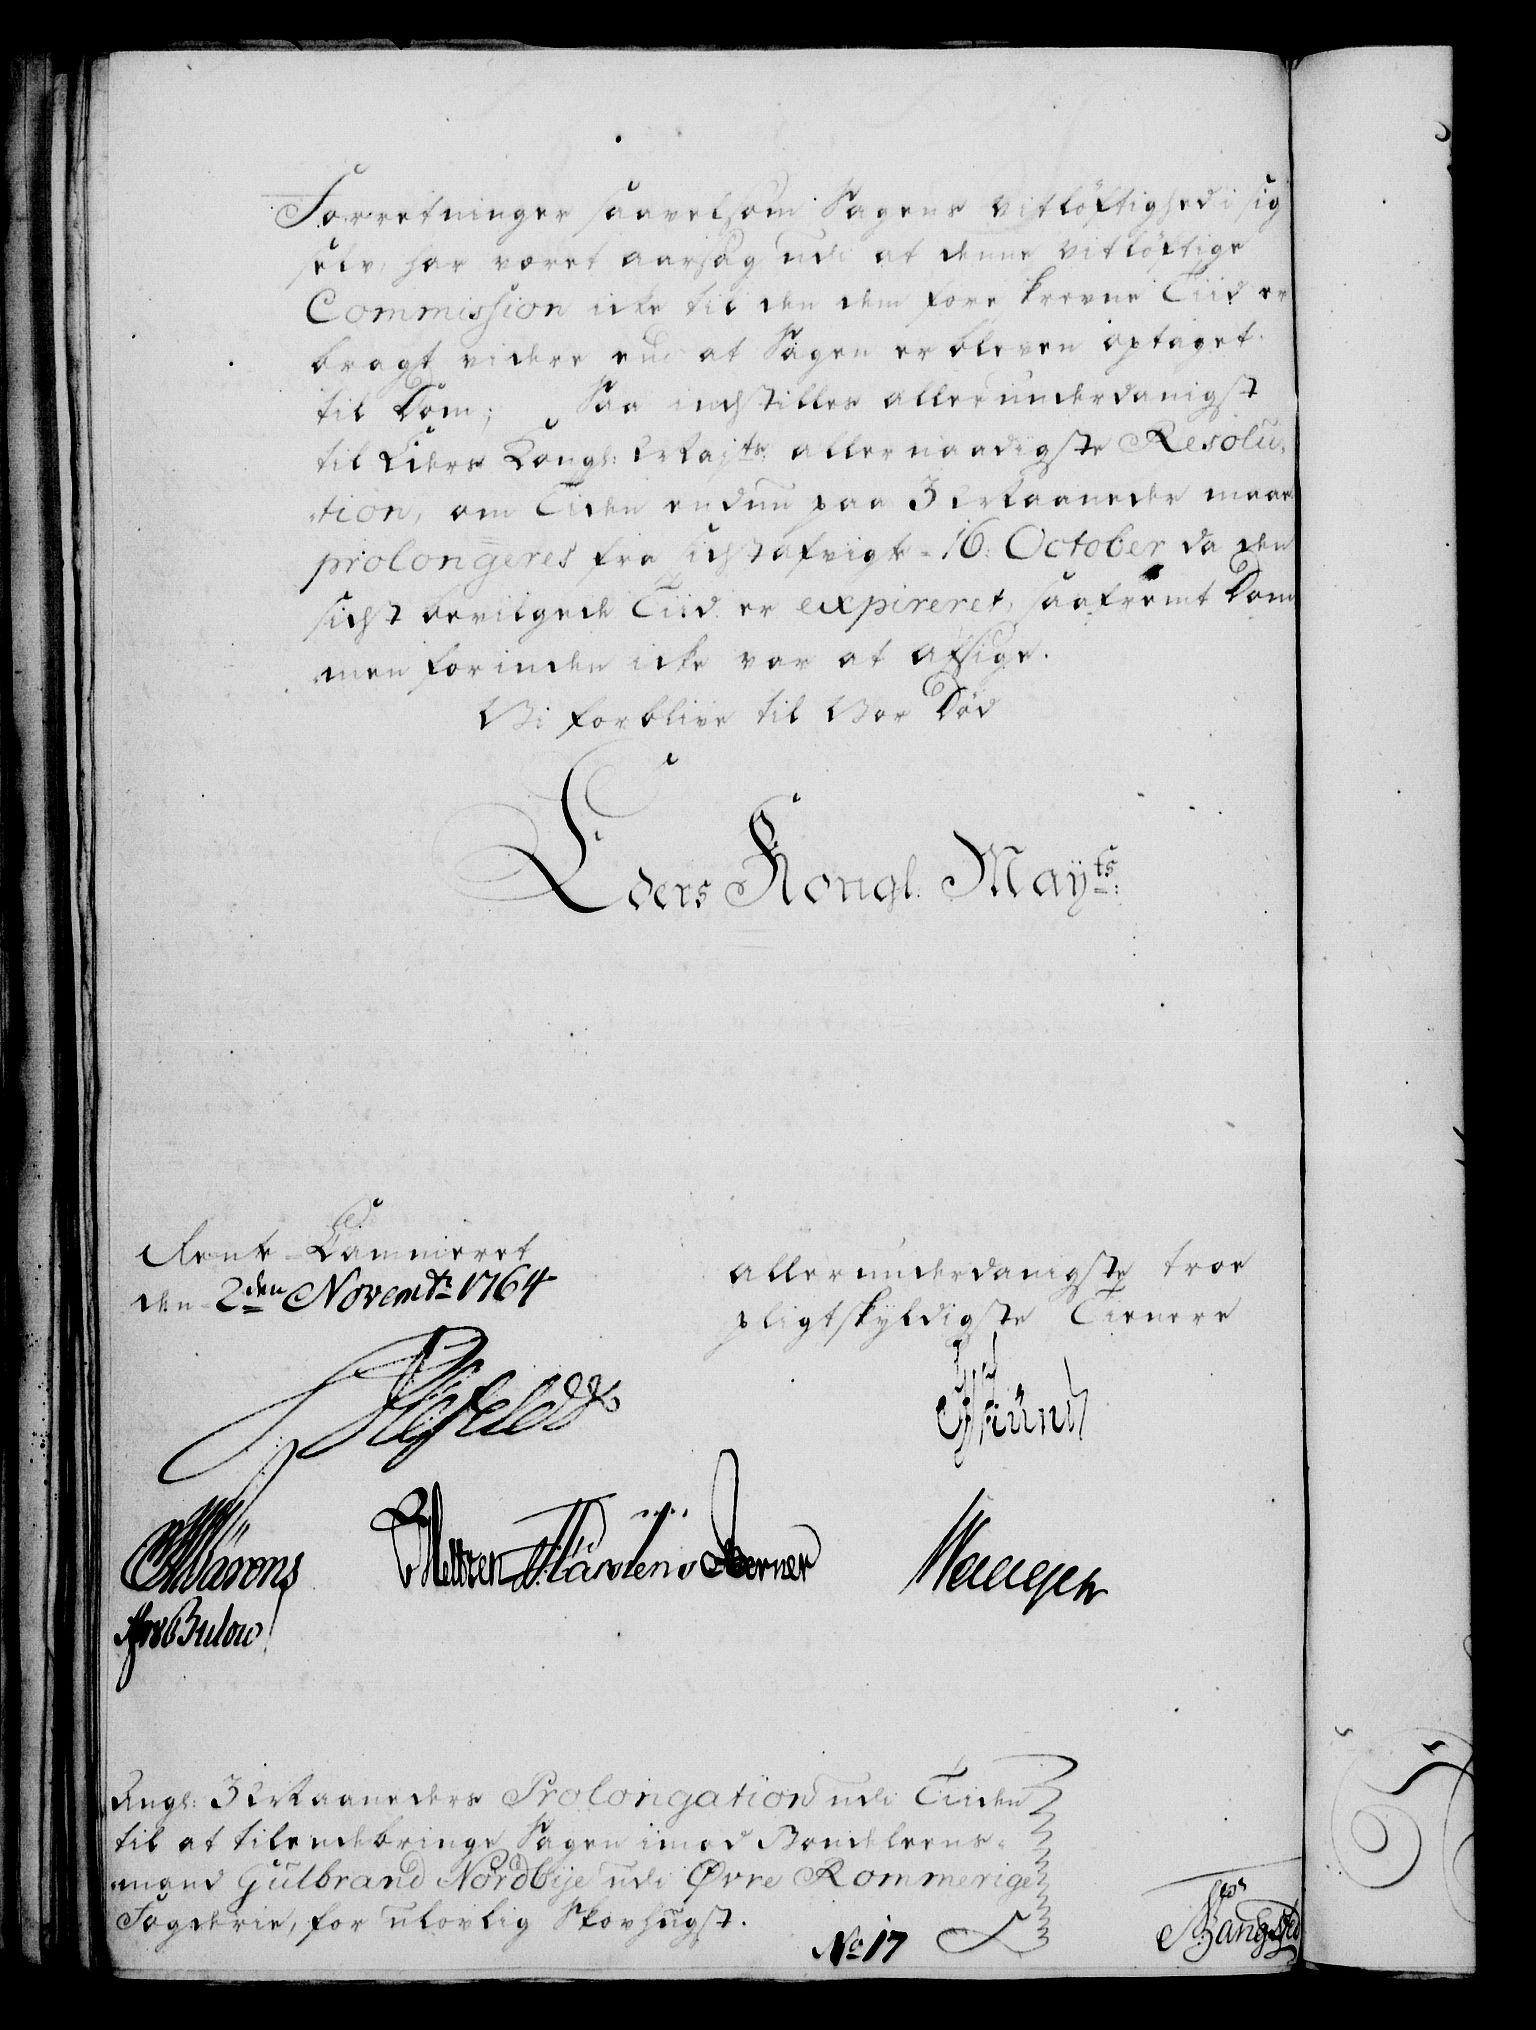 Forretninger saavelsom Sagens vitløftighed i sig
selv, har været aarsag udi at denne vitløftige
Commission icke til den dem fore skrevne Tiid er
bragt videre end at Sagen er bleven optaget
til Dom; Saa indstilles allerunderdanigst
til Eders Kongl: Mayts: allernaadigste Resolu-
tion, om Tiden endnu paa 3 Maaneder maae
prolongeres fra sidstafvigte 16: October da den
sidst bevilgede Tiid er expireret, saafremt Dom
men forinden icke var at afsige.
Vi forblive til Vor Død
Eders Kongl. Maÿts:
Rente-Cammeret
den 2den Novembr: 1764
allerunderdanigste troe
pligtskyldigste Tienere
Meltzen
Berner
Bulow
Angl: 3 Maaneders Prolongation udi Tiiden
til at tilendebringe Sagen imod Bondelens-
mand Gulbrand Nordbÿe udi Øvre Rommerige
Fogderie, for ulovlig Skovhugst.
No 17